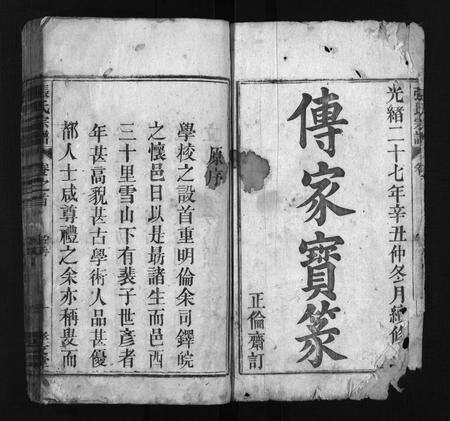 光緒二十七年辛丑仲冬月續修
傳家寶篆
正倫齋訂
原序
學校之設首重明倫余司鐸皖
之懷邑日以是勗諸生而邑西
三十里雪山下有裴子世彥者
年甚高貌甚古學術人品甚優
都人士咸尊禮之余亦稱羨而
氏宗譜
卷之首